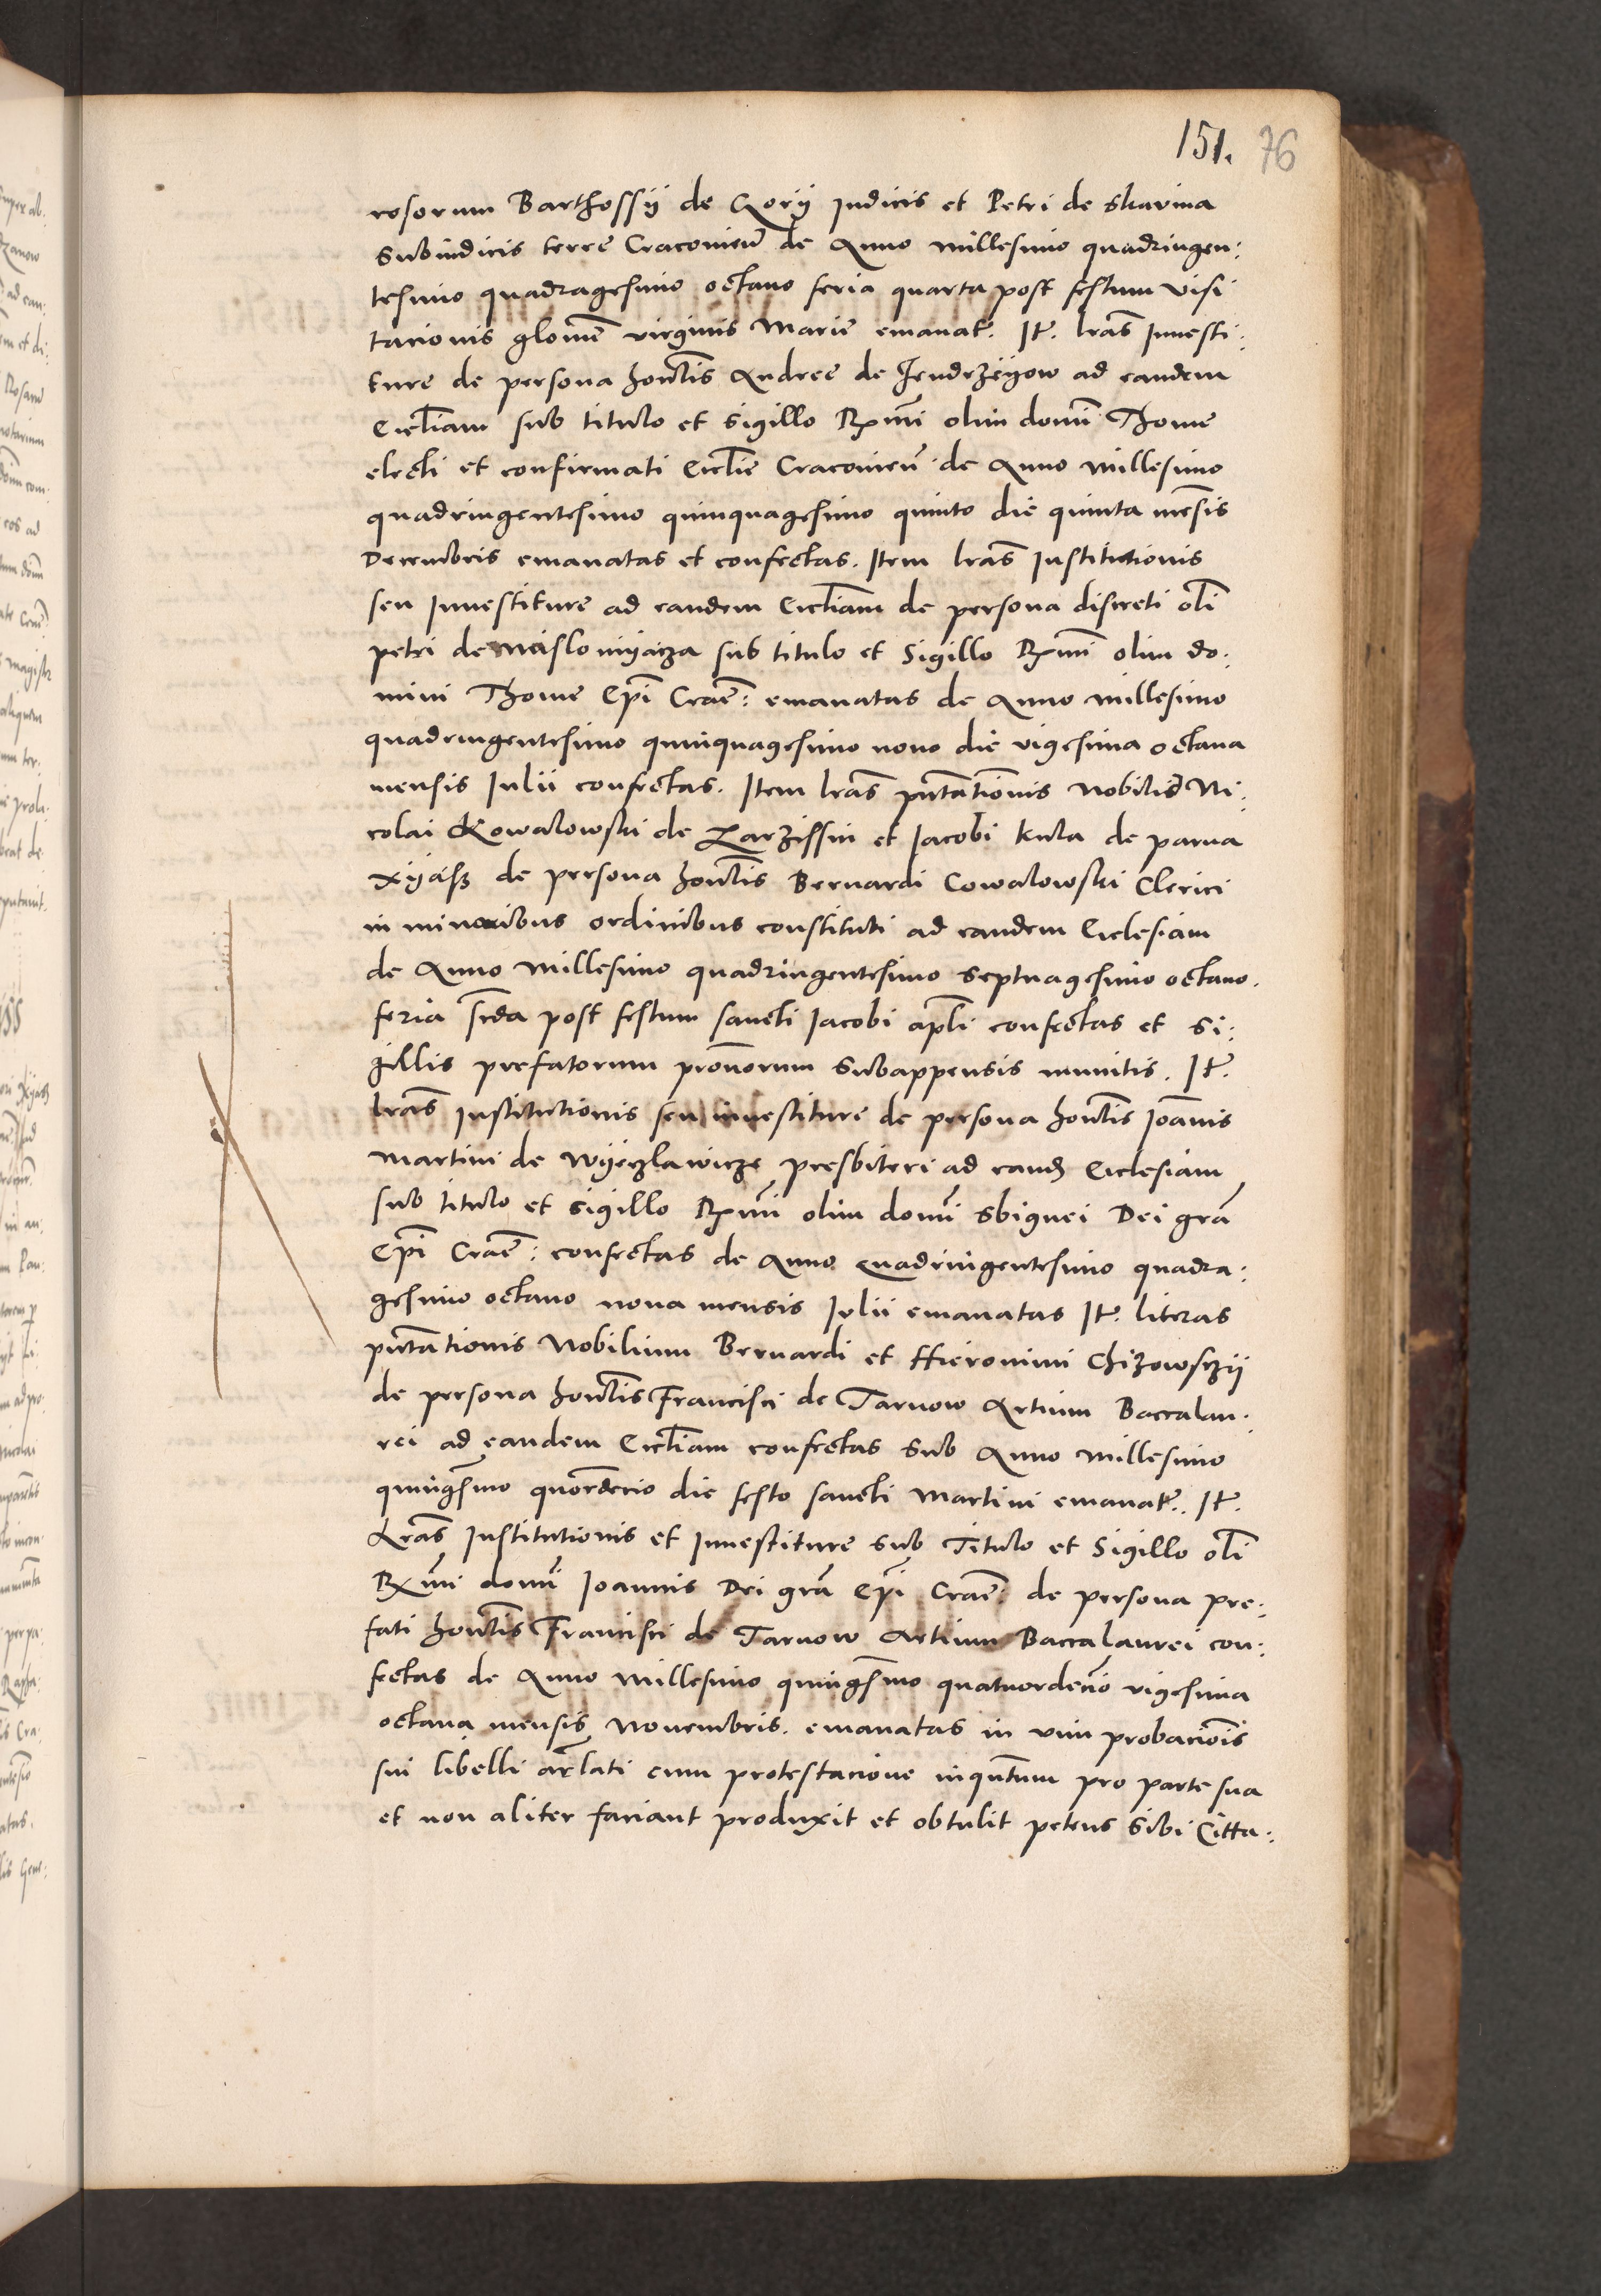 151. 76
rosorum Barthossÿ de Gorÿ Iudicis et Petri de skavina
Subiudicis terre Cracovien̄ de Anno millesimo quadringen:
tesimo quadragesimo octavo feria quarta post festum visi
tacionis glo͞me virginis Marie emanat͛. It͛. l͞ras Investi:
ture de persona hon͞tis Andree de Jendrzÿow ad eandem
Eccl͞iam sub titulo et sigillo R͞mi olim dom͞i Thome
electi et confirmati Eccl͞ie Cracovien̄ de Anno millesimo
quadringentesimo quinquagesimo quinto die quinta me͞sis
Decembris emanatas et confectas. Item l͞ras Institutionis
seu Investiture ad eandem Eccl͞iam de persona discreti ol͞i
petri de Maslomÿacza sub titulo et Sigillo R͞mi olim do:
mini Thome Ep͞i Cra͞c: emanatas de Anno millesimo
quadringentesimo quinquagesimo nono die vigesima octava
mensis Iulii confectas. Item l͞ras p͞ntationis Nobiliu͞ Ni:
colai Kowalowski de Zarzissin et Iacobi kula de parva
Xÿasz de persona hon͞tis Bernardi Cowalowski Clerici
in minoribus ordinibus constituti ad eandem Ecclesiam
de Anno millesimo quadringentesimo septuagesimo octavo.
feria s͞cda post festum sancti Iacobi ap͞li confectas et si:
gillis prefatorum p͞ronorum subappensis munitis. It͛.
l͞ras Institutionis seu investiture de persona hon͞tis Io͞anis
Martini de Wÿerzlawicze presbiteri ad eand͛ Ecclesiam
sub titulo et sigillo R͞mi olim dom͞i Sbignei Dei gr͞a
Ep͞i Cra͞c: confectas de Anno quadringentesimo quadra:
gesimo octavo nona mensis Iulii emanatas It͛. literas
p͞ntationis Nobilium Bernardi et Hieronimi Chizowsczÿ
de persona hon͞tis Francisci de Tarnow Artium Baccalau:
rei ad eandem Eccl͞iam confectas sub Anno millesimo
quing͞smo quo͞rdecio die festo sancti Martini emanat͛. It͛.
L͞ras Institutionis et Investiture sub Titulo et Sigillo ol͞i
R͞mi dom͞i Ioannis Dei gr͞a Ep͞i Cra͞c: de persona pre:
fati hon͞tis Francisci de Tarnow Artium Baccalaurei con:
fectas de Anno millesimo quing͞smo quatuordecio͞ vigesima
octava mensis Novembris. emanatas in vim probacio͞is
sui libelli a͞rlati cum protestacione inqu͞tum pro parte sua
et non aliter faciant produxit et obtulit petens sibi Citta: